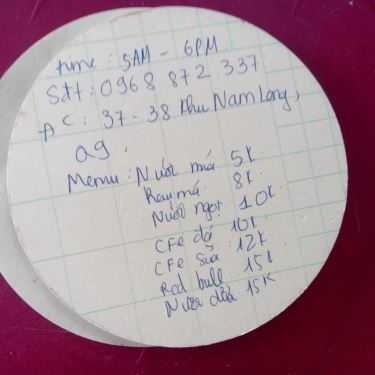 time : 5AM - 6PM
Sđt : 0968 872 337
ĐC : 37 - 38 Khu Nam Long,
Q9.
Menu : Nước mía 5K
Rau má 8K
Nước ngọt 10K
CFe đá 10K
CFe sữa 12K
Red bull 15K
Nước dừa 15K